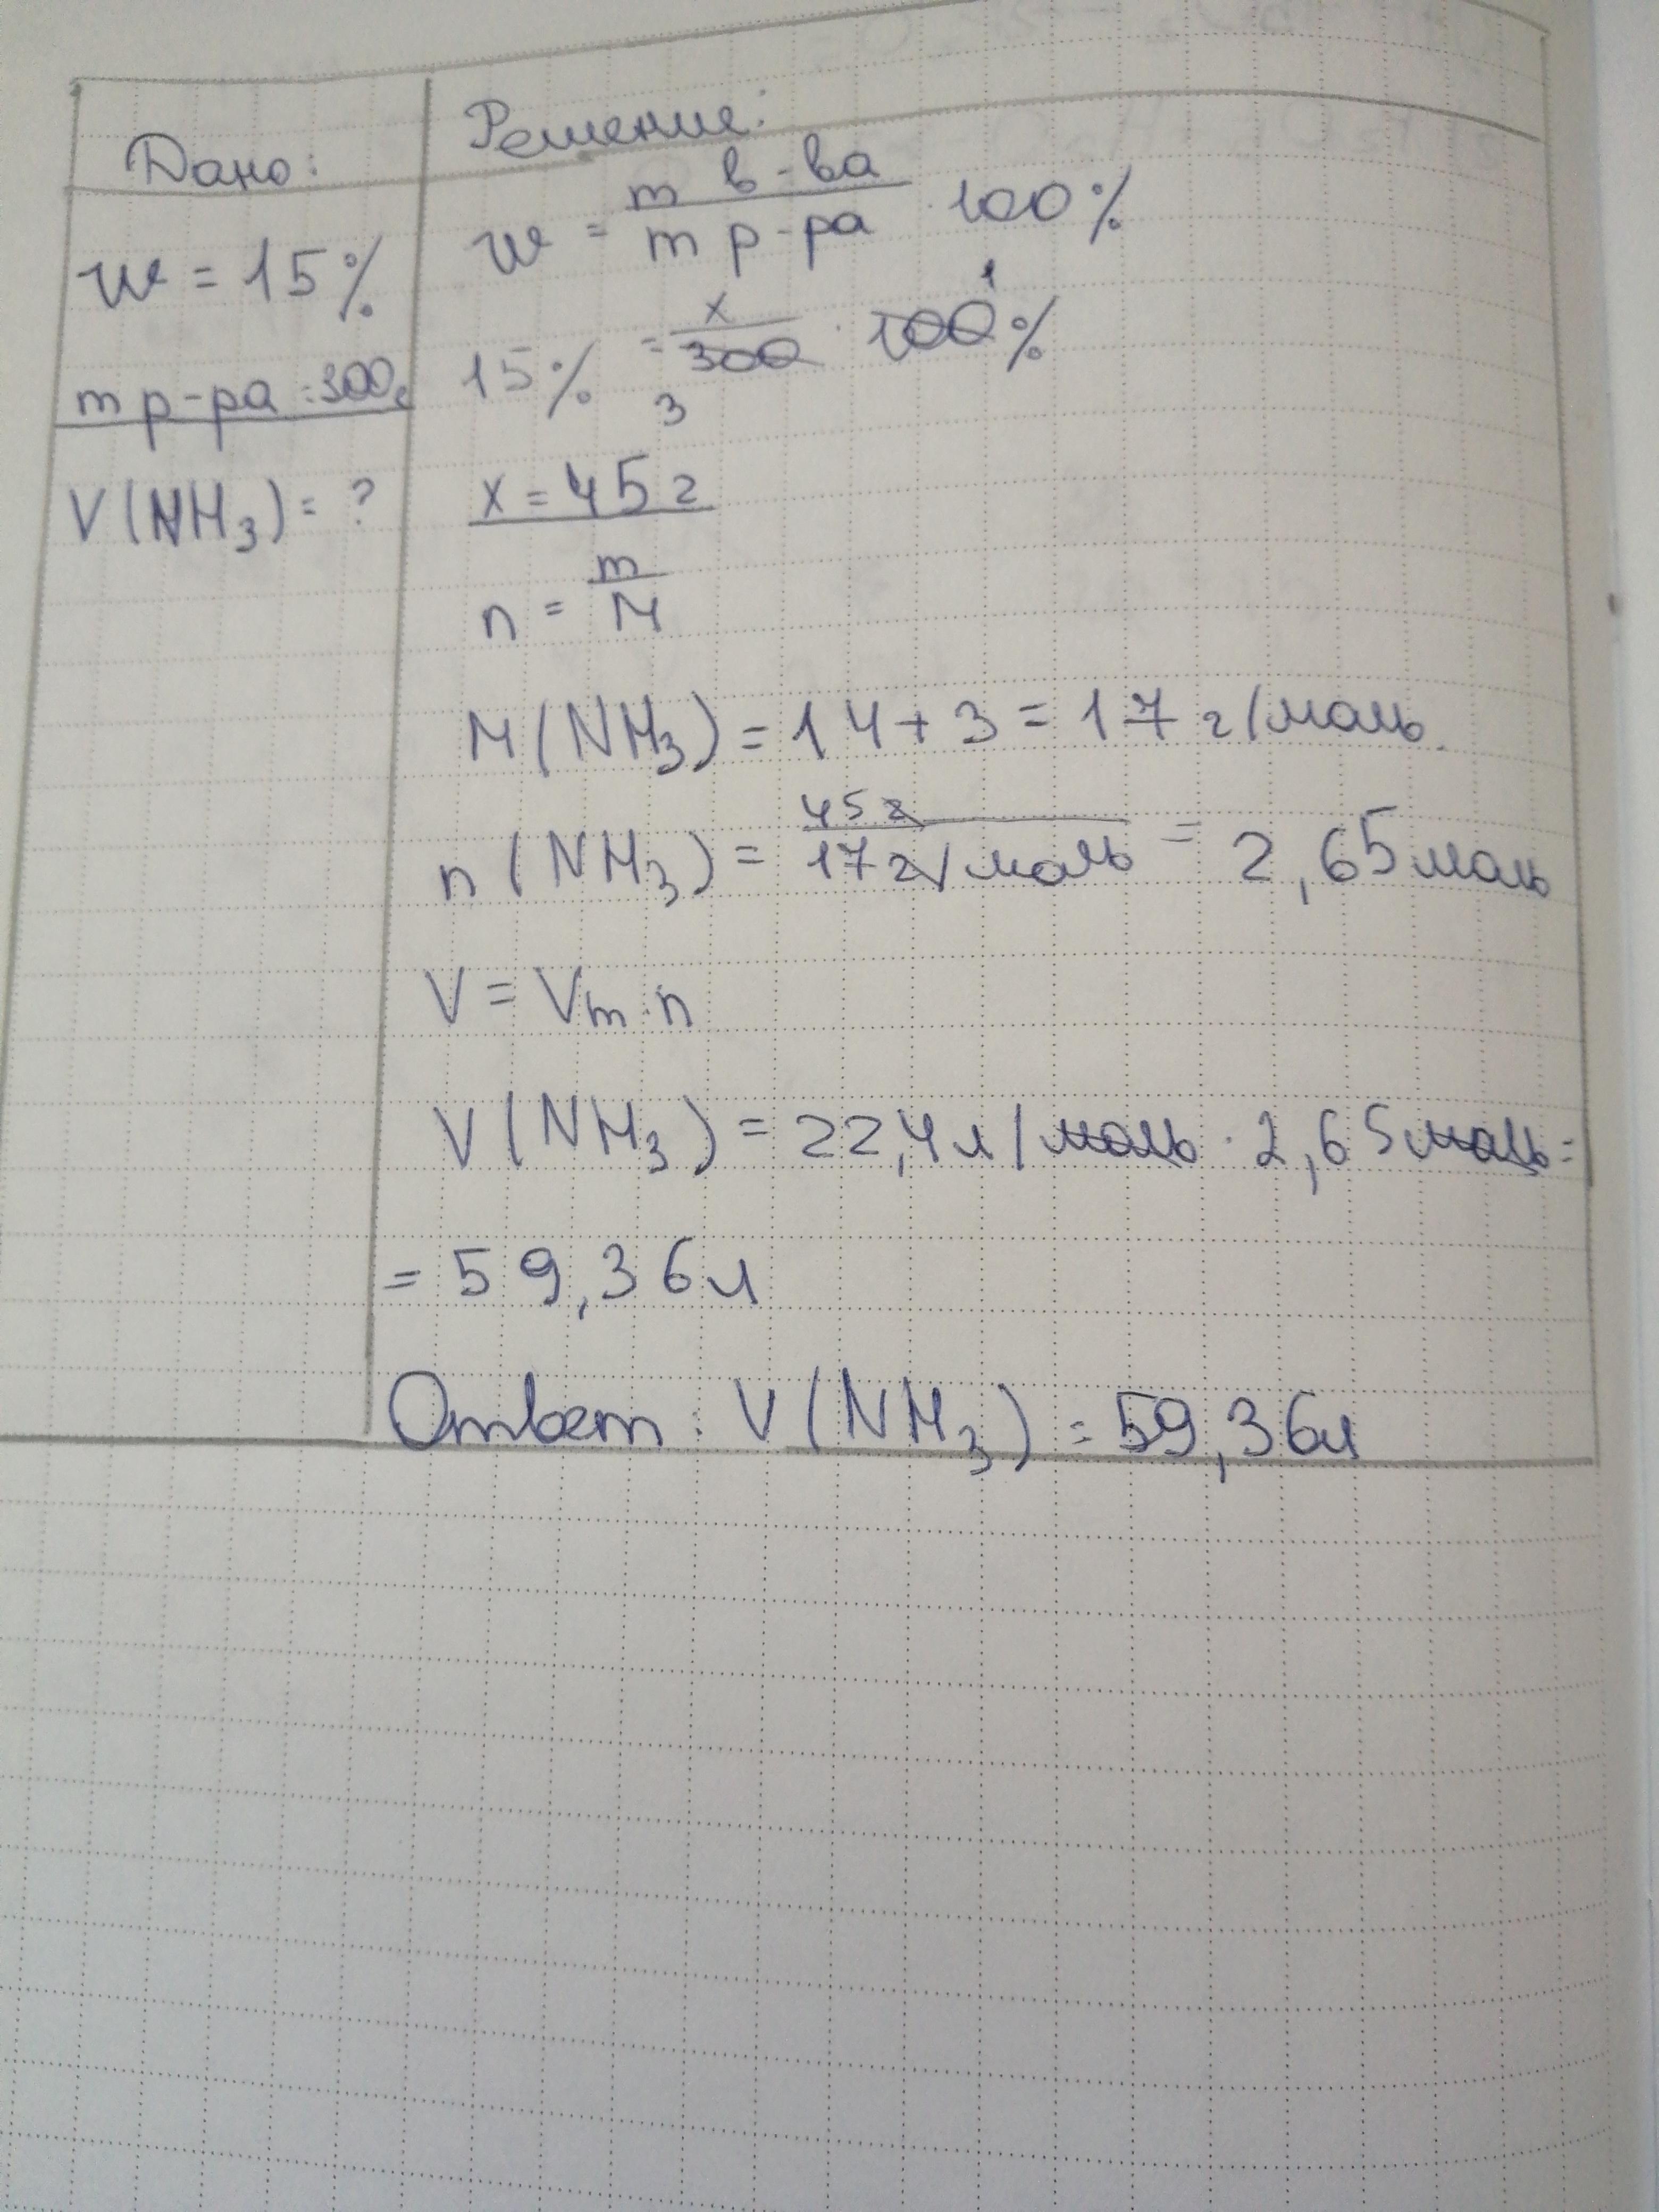 Дано:
w = 15%
m р-ра = 300г
V(NH₃) = ?
Решение:
w = m в-ва / m р-ра · 100%
15% = x / 300 · 100%
1
3
x = 45 г
n = m / M
M(NH₃) = 14 + 3 = 17 г/моль
n(NH₃) = 45 г / 17 г/моль = 2,65 моль
V = Vm · n
V(NH₃) = 22,4 л/моль · 2,65 моль =
= 59,36 л
Ответ: V(NH₃) = 59,36 л